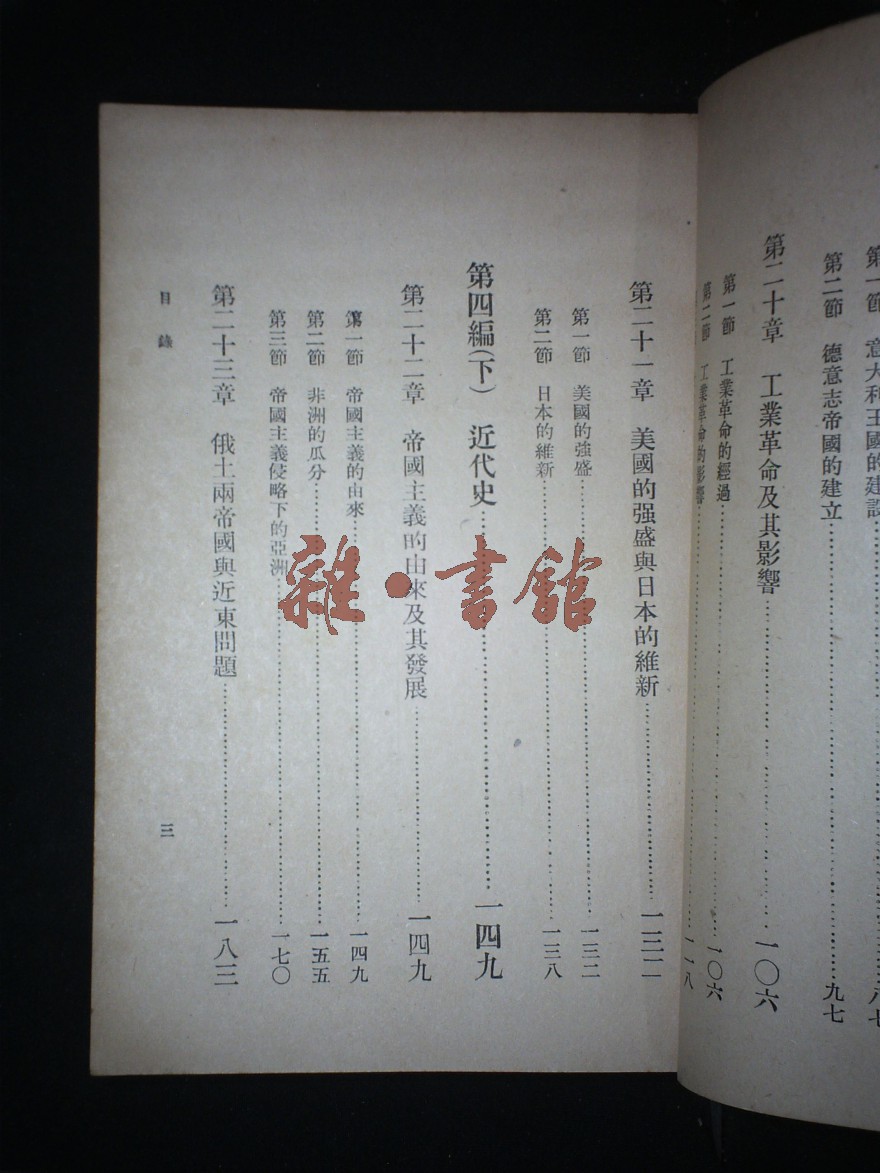 第一節 意大利王國的建設……八七
第二節 德意志帝國的建立……九七
第二十章 工業革命及其影響……一〇六
第一節 工業革命的經過……一〇六
第二節 工業革命的影響……一一八
第二十一章 美國的强盛與日本的維新……一三二
第一節 美國的強盛……一三二
第二節 日本的維新……一三八
第四編(下) 近代史……一四九
第二十二章 帝國主義的由來及其發展……一四九
第一節 帝國主義的由來……一四九
第二節 非洲的瓜分……一五五
第三節 帝國主義侵略下的亞洲……一七〇
第二十三章 俄土兩帝國與近東問題……一八三
目錄 三
雜·書館